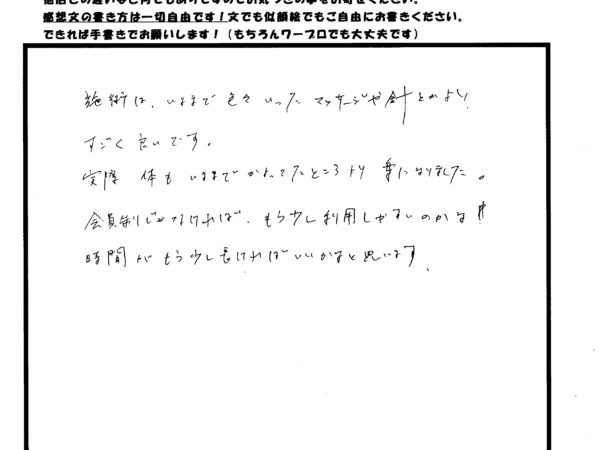 感想文の書き方は一切自由です!文でも似顔絵でもご自由にお書きください。
できれば手書きでお願いします!(もちろんワープロでも大丈夫です)
施術は、いままで色々いったマッサージや針とかより
すごく良いです。
実際 体も いままでかよってたところより 楽になりました。
会員制じゃなければ、もう少し利用しやすいのかな
時間が もう少し長ければいいかなと思います。